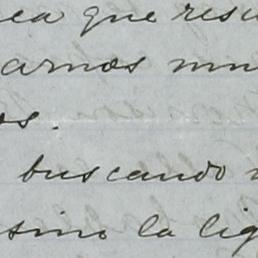 que resu
arnos mu
os.
buscando
sino la lig